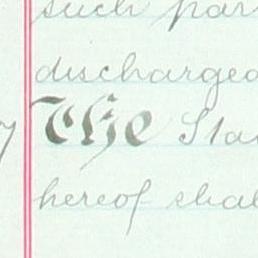 such par
discharged
y The Sta
hereof shal